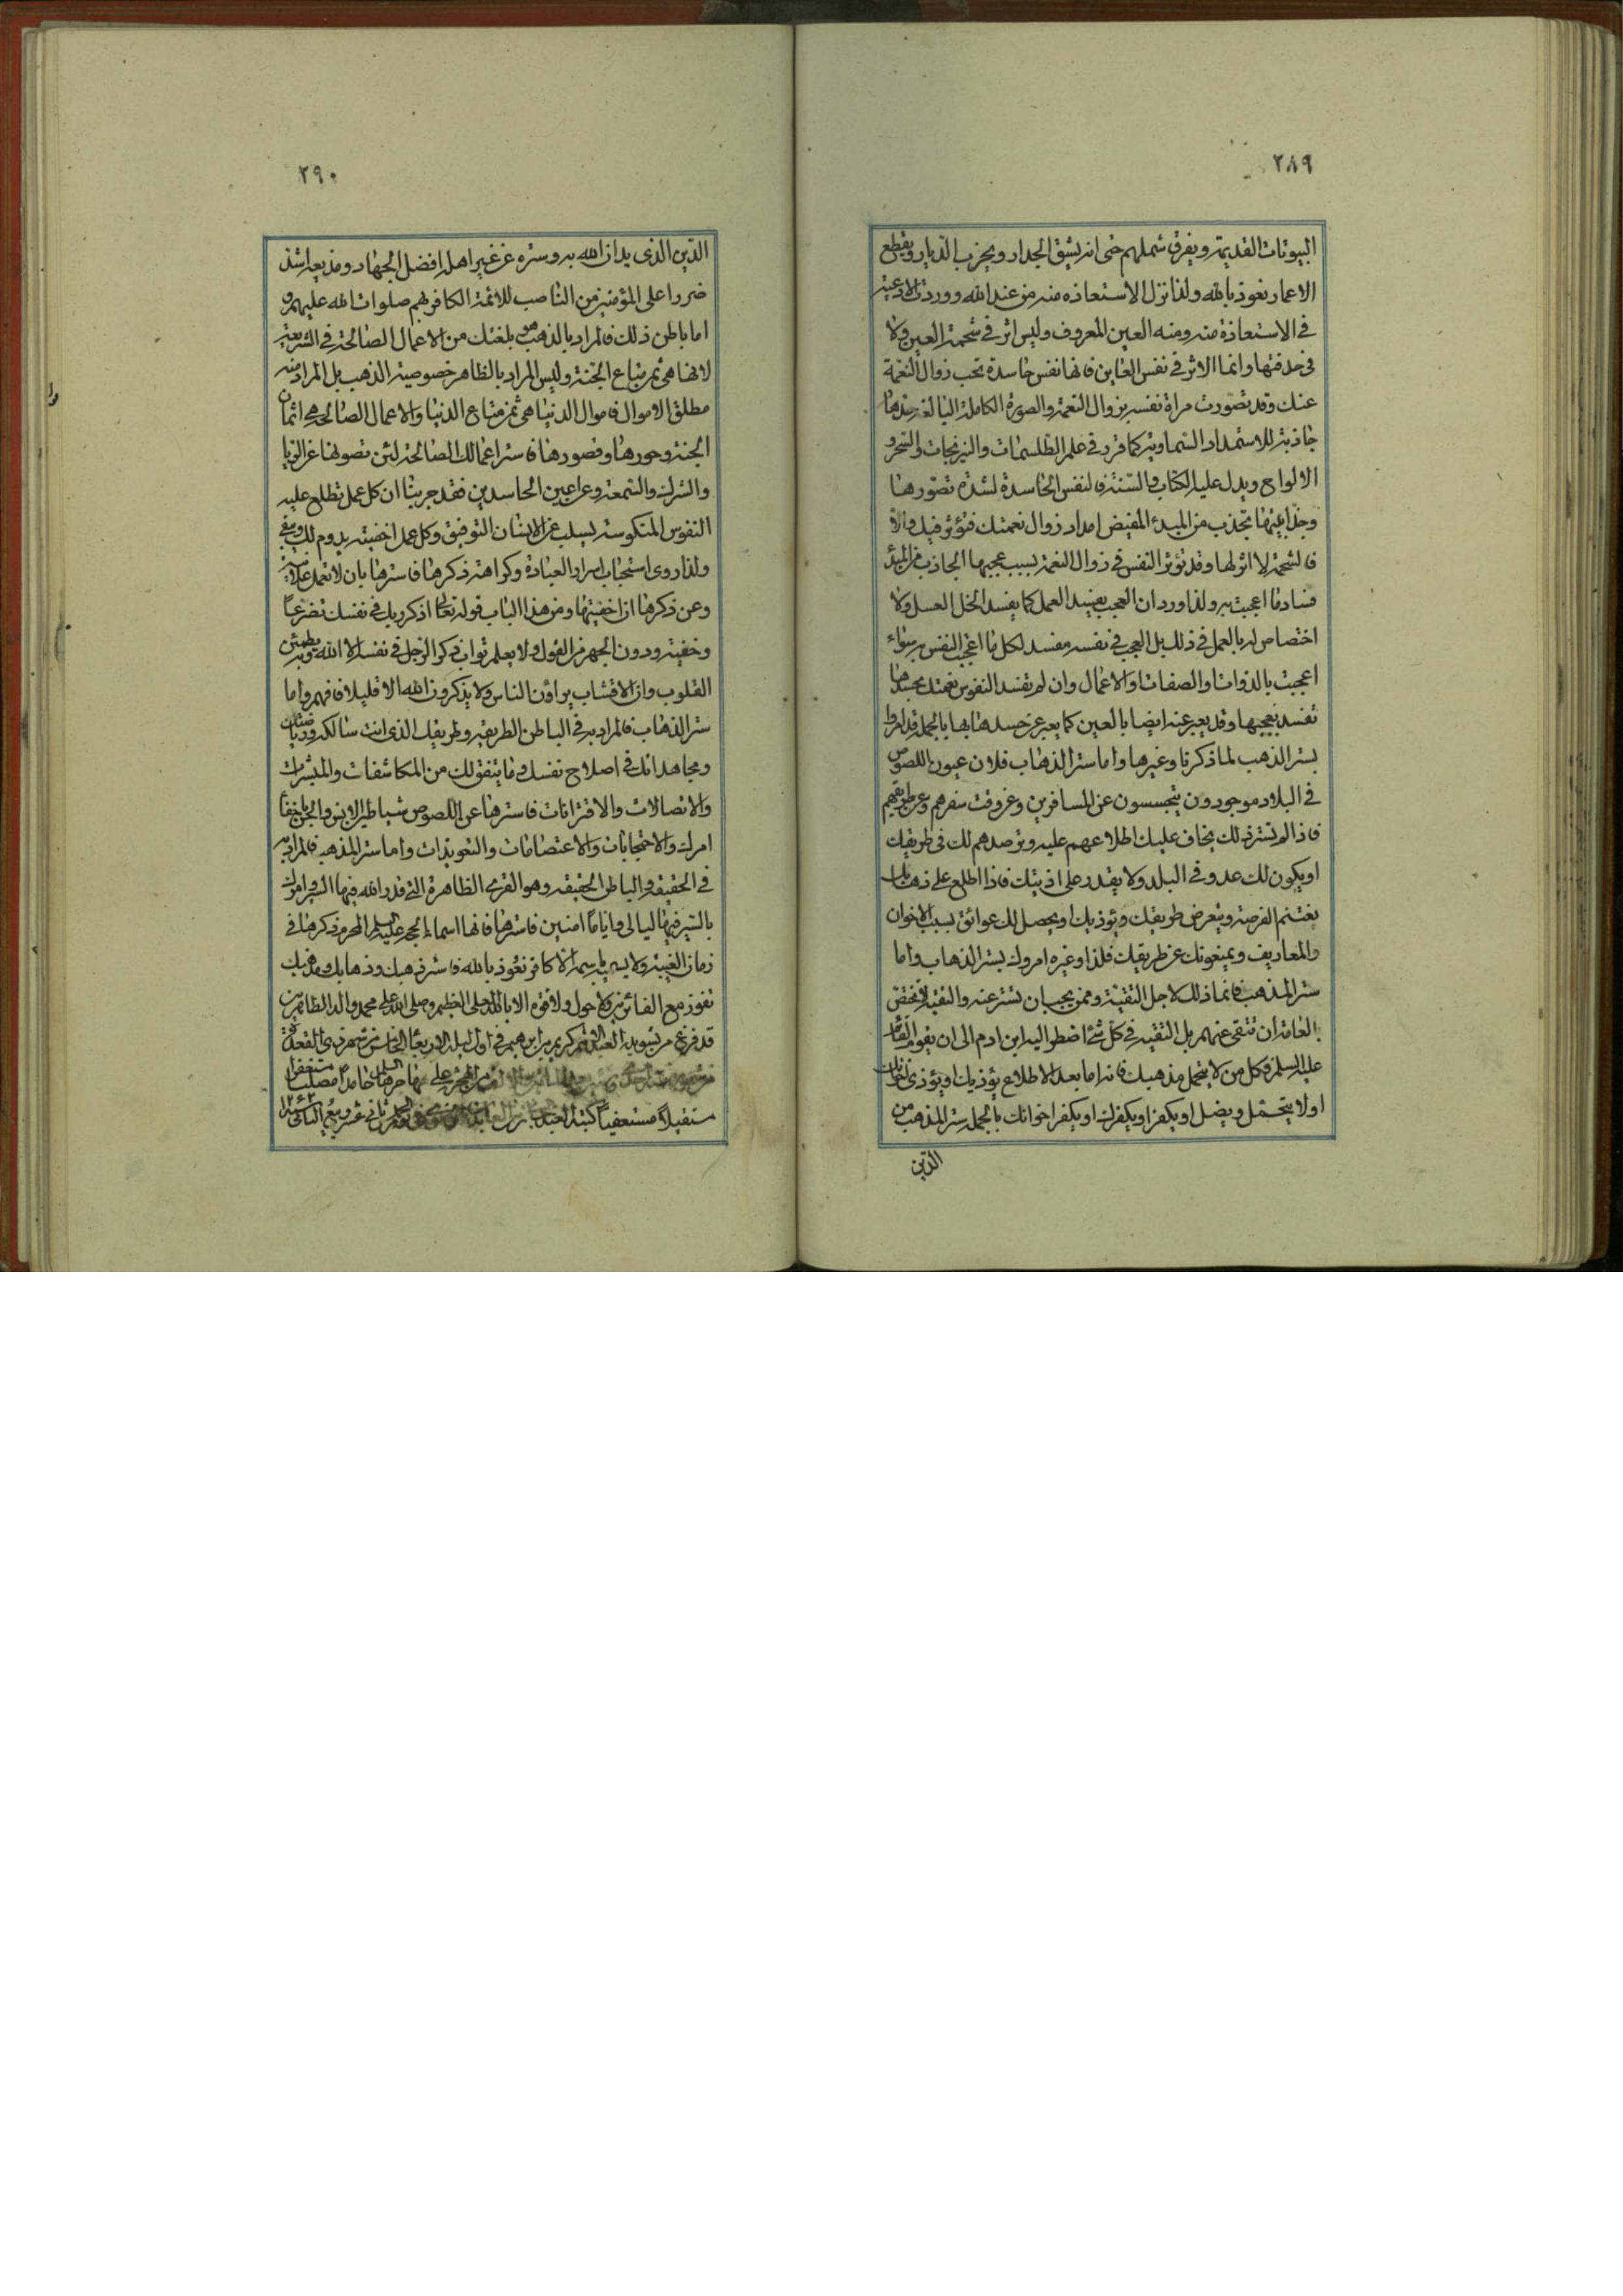 ٢٨٩
البيوتات القديمة ويفرق شملهم حتى انه يشق الجدار ويخرب الديار ويقطع
الاعمار نعوذ بالله ولذا نزل الاستعاذه منه من عند الله ووردت الادعية
فى الاستعاذة منه ومنه العين المعروف وليس اثر فى شحمة العين ولا
فى حدقتها وانما الاثر فى نفس العاين فانها نفس حاسدة تحب زوال النعمة
عنك وقد تصورت مراة نفسه بزوال النعمة والصورة الكاملة البالغة
جاذبة للاستمداد السماوية كما قرر فى علم الطلسمات والنيرنجات والسحر و
الالواح ويدل عليه الكتاب والسنة فالنفس الحاسدة لشدة تصورها
وجذابيتها تجذب من المبدء المفيض امداد زوال نعمتك فتؤثر فيك والا
فالشحمة لا اثر لها وقد تؤثر النفس فى زوال النعمة بسبب عجبها الجاذب من المبدء
فساد ما اعجبت به ولذا ورد ان العجب يفسد العمل كما يفسد الخل العسل ولا
اختصاص له بالعمل فى ذلك بل العجب فى نفسه مفسد لكل ما اعجب النفس به سواء
اعجبت بالذوات او الصفات او الاعمال وان لم تفسد النفوس نعمتك بحسدها
تفسد بعجبها وقد يعبر عنه ايضا بالعين كما يعبر عن حسدها بها بالجملة قد امروا
بستر الذهب لما ذكرنا وغيرها واما ستر الذهاب فلان عيون اللصوص
فى البلاد موجودون يتجسسون عن المسافرين وعن وقت سفرهم وعن طريقهم
فاذا لم تستر ذلك يخاف عليك اطلاعهم عليه وترصدهم لك فى طريقك
او يكون لك عدو فى البلد ولا يقدر على اذيتك فاذا اطلع على ذهابك
يغتنم الفرصة ويتعرض طريقك ويؤذيك او يحصل لك عوائق بسبب الاخوان
والمعاريف ويمنعونك عن طريقك فلذا وغيره امروك بستر الذهاب واما
ستر المذهب فانما ذلك لاجل التقية وممن يجب ان تستر عنه والتقية لا تختص
بالعامة ان تتقى عنهم بل التقية فى كل شئ اضطر اليه ابن ادم الى ان يقوم القائم
عليه السلم فكل من لا يتحمل مذهبك فانه اما بعد الاطلاع يؤذيك او يؤذى
او لا يتحمل ويضل او يكفر او يكفرك او يكفر اخوانك بالجملة ستر المذهب من
الدين
٢٩٠
الدين الذى يدان الله به وستره عن غير اهله افضل الجهاد ومذيعه اشد
ضررا على المؤمنين من الناصب للائمة الكافر بهم صلوات الله عليهم و
اما باطن ذلك فالمراد بالذهب هو بلغتك من الاعمال الصالحة فى الشريعة
لانها هى ثمن متاع الجنة وليس المراد بالظاهر خصوصية الذهب بل المراد منه
مطلق الاموال فاموال الدنيا هى ثمن متاع الدنيا والاعمال الصالحة هى اثمان
الجنة وحورها وقصورها فاستر اعمالك الصالحة لئن تصونها عن الريا
والشرك والسمعة وعن اعين الحاسدين فقد جربنا ان كل عمل تطلع عليه
النفوس المنكوسة يسلب عن الانسان التوفيق وكل عمل اخفيته يدوم لك ويبقى
ولذا روى استحباب اسرار العبادة وكراهة ذكرها فاسترها بان لا تعمل علانية
وعن ذكرها ان اخفيتها ومن هذا الباب قوله تعالى اذكر ربك فى نفسك تضرعا
وخفية ودون الجهر من القول ولا يعلم ثواب ذكر الرجل فى نفسه الا الله وبه يطمئن
القلوب وان الاقشاب يراؤن الناس ولا يذكرون الله الا قليلا فافهم واما
ستر الذهاب فالمراد به فى الباطن الطريقة وطريقك الذى انت سالكه ورياضتك
ومجاهداتك فى اصلاح نفسك وما يتفق لك من المكاشفات والمبشرات
والاتصالات والاقترانات فاسترها عن اللصوص شياطين الانس والجن
امرك والاحتجابات والاعتصامات والتعويذات واما ستر المذهب فالمراد به
فى الحقيقة والباطن الحقيقة وهو القرى الظاهرة التى قدر الله فيها السير وامرك
بالسير فيها ليالى واياما امنين فاسترها فانها اسماء الحجة عليه السلم المحرم ذكرها فى
زمان الغيبة ولا يسميه باسمه الا كافر نعوذ بالله فاستر ذهبك وذهابك ومذهبك
تفوز مع الفائزين ولا حول ولا قوة الا بالله العلى العظيم وصلى الله على محمد واله الطاهرين
قد فرغ من تسويده العبد الاثيم كريم بن ابرهيم فى اول ليلة الاربعا الخامس من شهر ذى القعدة
من الهجرة على مهاجرها السلام حامدا مصليا مستغفرا
مستقبلا مستعفيا كتبه العبد